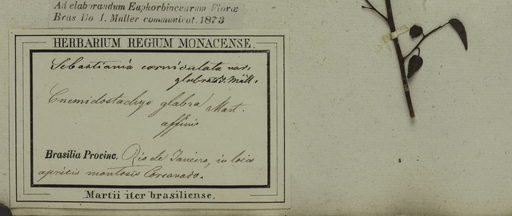 Ad elaborandum Euphorbinearum Florae
Bras Do. I. Müller communicat. 1873
HERBARIUM REGIUM MONACENSE.
Sebastiania corniculata var.
glabrata Müll.
Cnemidostachys glabra Mart.
affinis
Brasilia Provinc. Rio de Janeiro, in locis
apricis montosis Corcovado.
Martii iter brasiliense.